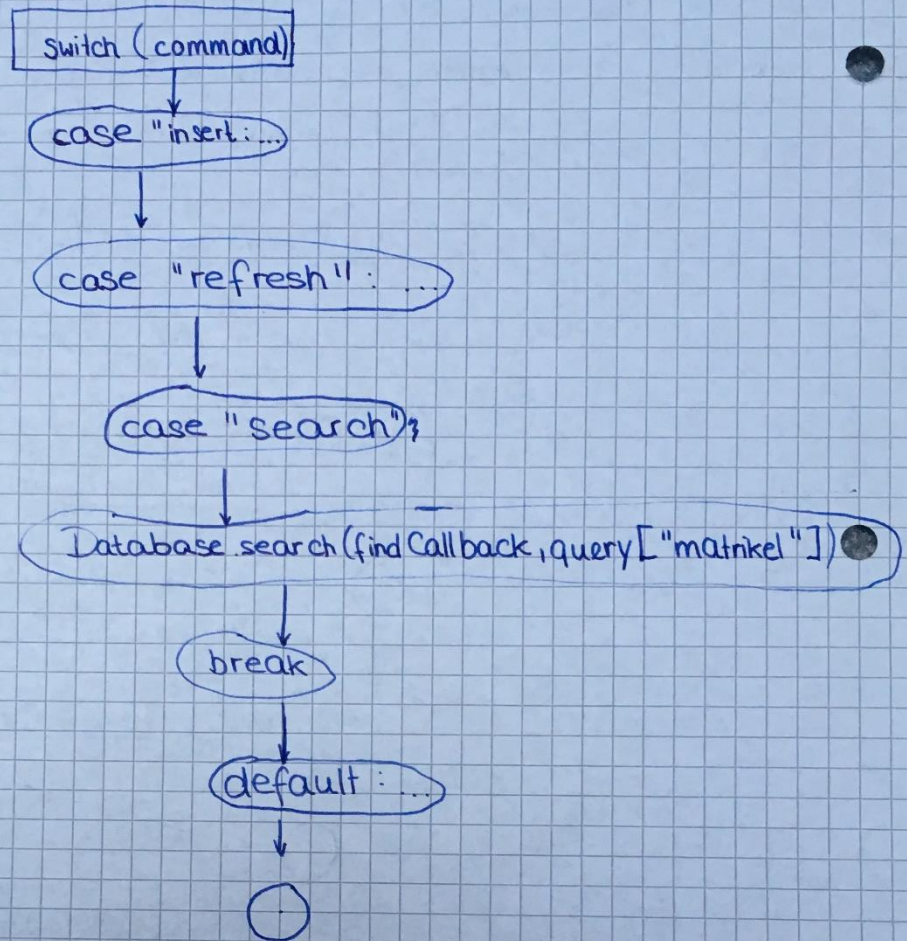 switch (command)
case "insert: ...
case "refresh": ...
case "search";
Database.search(findCallback, query["matrikel"])
break
default: ...